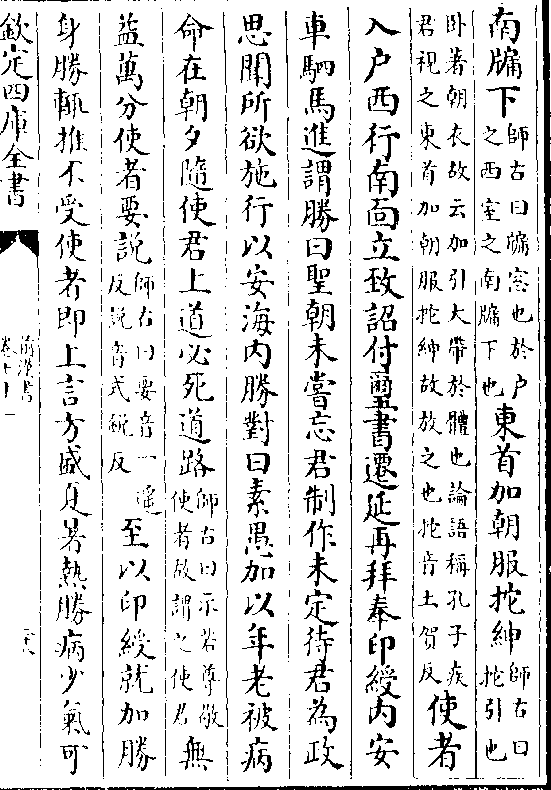 南牖下師古曰牖窓也於户之西室之南牖下也東首加朝服拕紳師古曰拕引也
卧著朝衣故云加引大帶於體也論語稱孔子疾君視之東首加朝服拕紳故放之也拕音土賀反使者
入户西行南面立致詔付璽書遷延再拜奉印綬内安
車駟馬進謂勝曰聖朝未嘗忘君制作未定待君為政
思聞所欲施行以安海内勝對曰素愚加以年老被病
命在朝夕隨使君上道必死道路師古曰示若尊敬使者故謂之使君無
益萬分使者要説師古曰要音一遥反説音式鋭反至以印綬就加勝
身勝輒推不受使者即上言方盛夏暑熱勝病少氣可
欽定四庫全書
前漢書